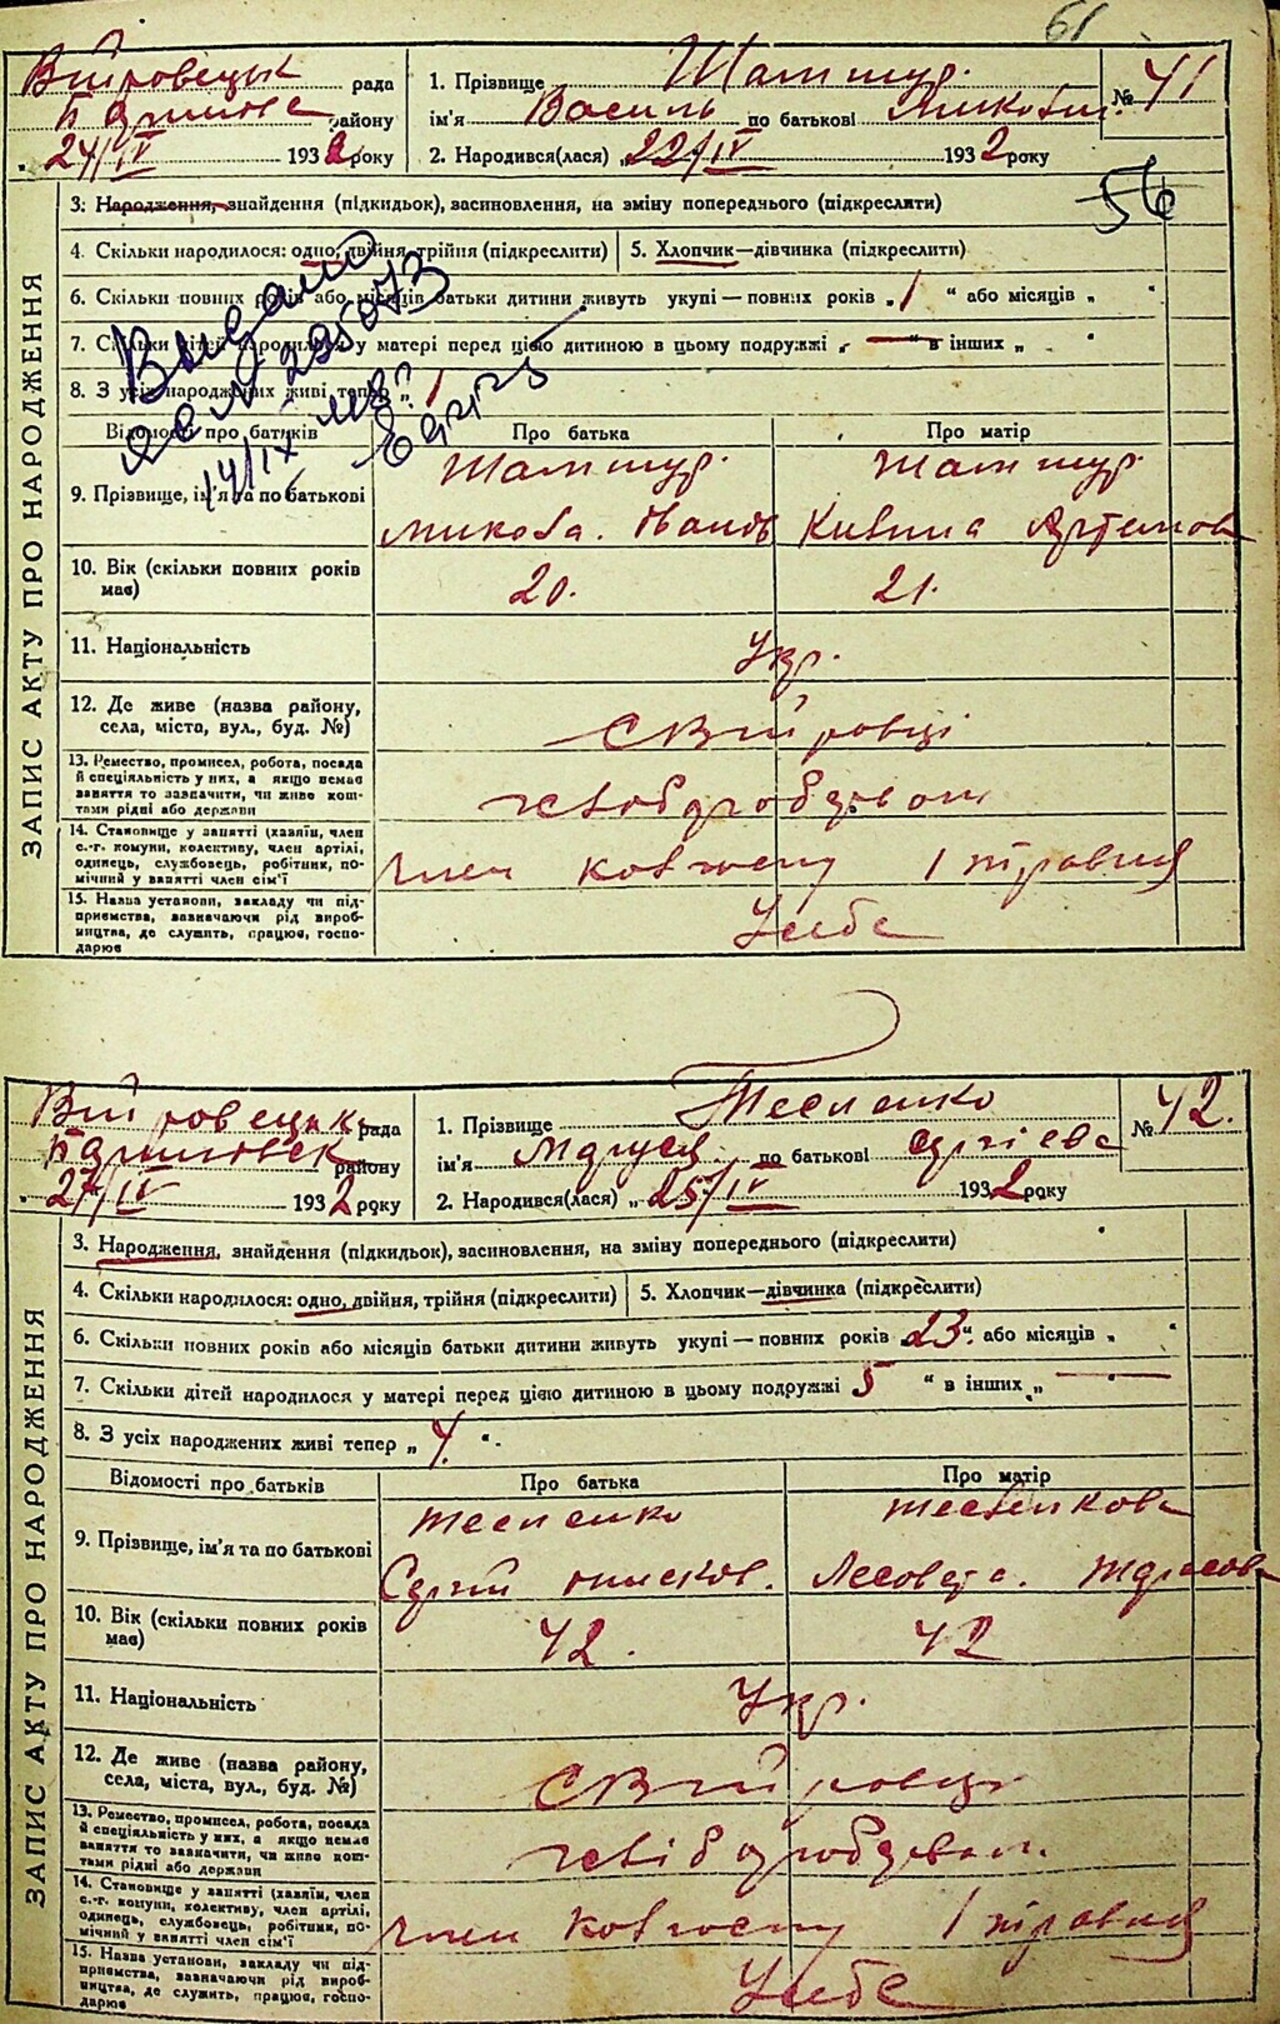 61
Війровецьк рада
району
24/IV 1932 року
1. Прізвище Шаммур.
ім'я Василь по батькові Микол.
№ 41
2. Народився(лася) „22/IV 1932 року
56
ЗАПИС АКТУ ПРО НАРОДЖЕННЯ
3: Народження, знайдення (підкидьок), засиновлення, на зміну попереднього (підкреслити)
4. Скільки народилося: одно, двійня, трійня (підкреслити)
5. Хлопчик—дівчинка (підкреслити)
6. Скільки повних років або місяців батьки дитини живуть укупі — повних років „1 “ або місяців „ “
7. Скільки дітей народилося у матері перед цією дитиною в цьому подружжі „ — “ в інших „ “
8. З усіх народжених живі тепер „ 1
Выдано
225073
14/IX
Відомості про батьків
Про батька
Про матір
9. Прізвище, ім'я та по батькові
Шаммур.
Шаммур.
Микола. Іванов
Килина Артемов
10. Вік (скільки повних років має)
20.
21.
11. Національність
Укр.
12. Де живе (назва району, села, міста, вул., буд. №)
с Війровці
13. Ремество, промисел, робота, посада
й спеціяльність у них, а якщо немає
заняття то зазначити, чи живе кош-
тами рідні або держави
хліборобдвом
14. Становище у занятті (хазяїн, член
с.-г. комуни, колективу, член артілі,
одинець, службовець, робітник, по-
мічний у занятті член сім'ї
член колгоспу 1 травня
15. Назва установи, закладу чи під-
приємства, зазначаючи рід вироб-
ництва, де служить, працює, госпо-
дарює
У себе
Війровецьк рада
району
27/IV 1932 року
1. Прізвище Тесленко
ім'я Маруся. по батькові Сргієва
№ 42.
2. Народився(лася) „25/IV 1932 року
ЗАПИС АКТУ ПРО НАРОДЖЕННЯ
3. Народження, знайдення (підкидьок), засиновлення, на зміну попереднього (підкреслити)
4. Скільки народилося: одно, двійня, трійня (підкреслити)
5. Хлопчик—дівчинка (підкреслити)
6. Скільки повних років або місяців батьки дитини живуть укупі — повних років „23“. або місяців „ “
7. Скільки дітей народилося у матері перед цією дитиною в цьому подружжі 5 “ в інших „ —
8. З усіх народжених живі тепер „ 4. “.
Відомості про батьків
Про батька
Про матір
9. Прізвище, ім'я та по батькові
Тесленко
Тесленкова
Сергій
Лесовета. Тарасова
10. Вік (скільки повних років має)
42.
42
11. Національність
Укр.
12. Де живе (назва району, села, міста, вул., буд. №)
с Війровці
13. Ремество, промисел, робота, посада
й спеціяльність у них, а якщо немає
заняття то зазначити, чи живе кош-
тами рідні або держави
хліборобдвом.
14. Становище у занятті (хазяїн, член
с.-г. комуни, колективу, член артілі,
одинець, службовець, робітник, по-
мічний у занятті член сім'ї
член колгоспу 1 травня
15. Назва установи, закладу чи під-
приємства, зазначаючи рід вироб-
ництва, де служить, працює, госпо-
дарює
У себе